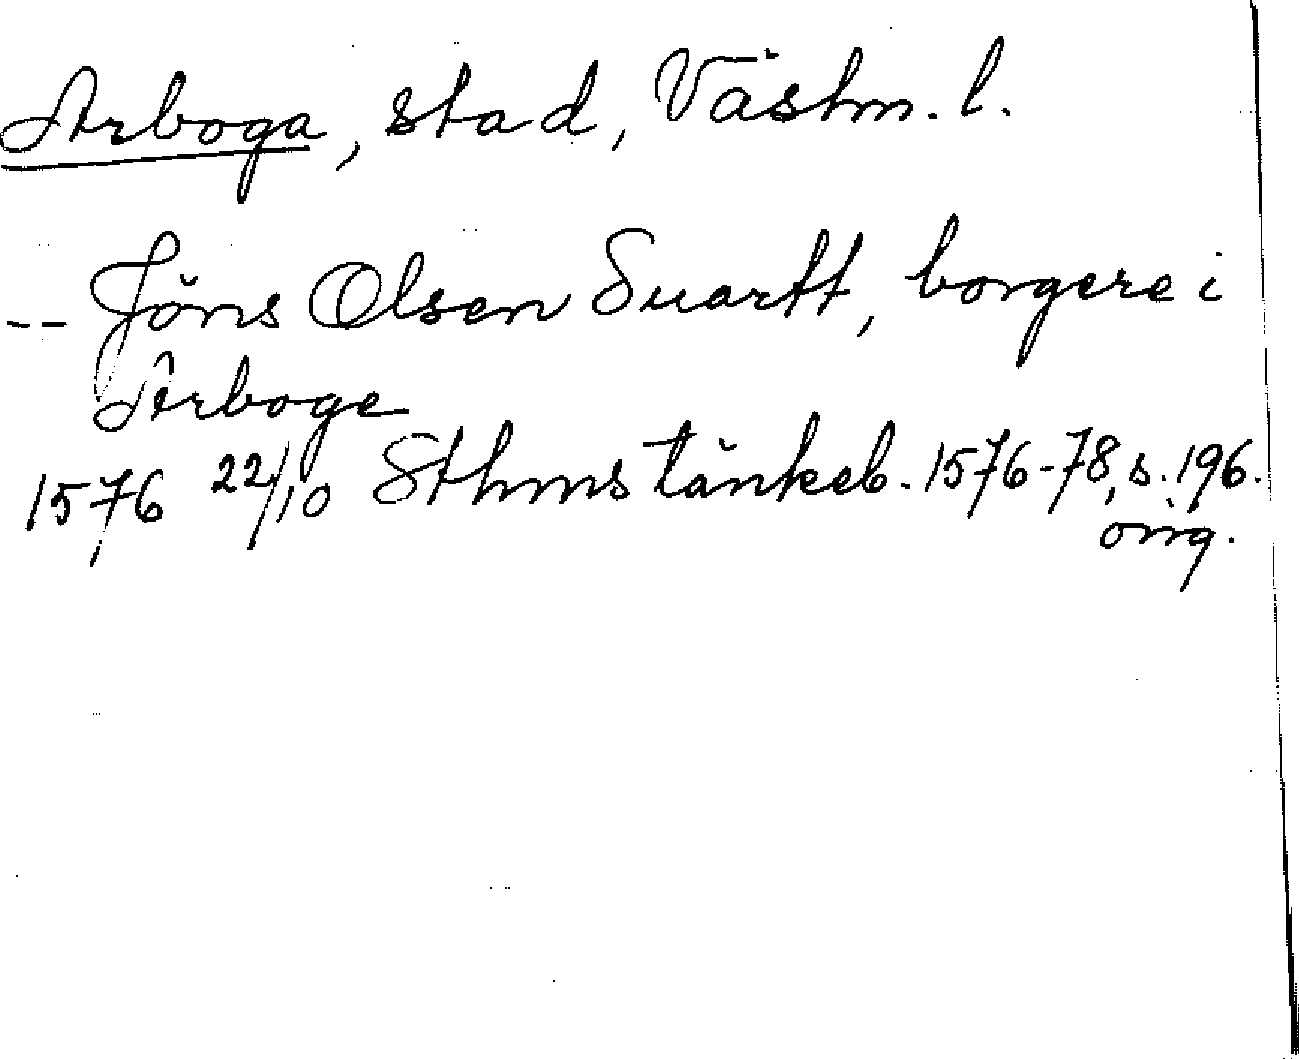 Arboga, stad, Västm. l.
-- Jöns Olsen Suartt, borgere i
Arboge
1576 22/10 Sthms tänkeb. 1576-78, s. 196.
orig.